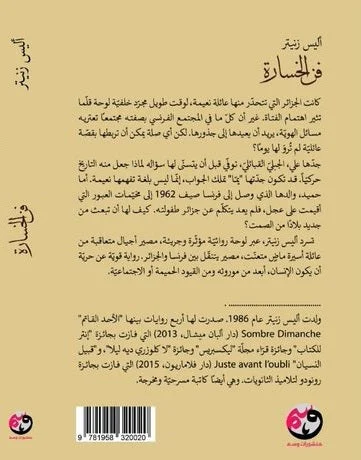 أليس زنيتر
فن الخسارة
كانت الجزائر التي تتحدّر منها عائلة نعيمة، لوقت طويل مجرّد خلفيّة لوحة قلّما
تثير اهتمام الفتاة. غير أن كلّ ما في المجتمع الفرنسي بصفته مجتمعاً تعتريه
مسائل الهويّة، يريد أن يعيدها إلى جذورها. لكن أي صلة يمكن أن تربطها بقصّة
عائليّة لم تُروَ لها يوماً؟
جدّها علي، الجبليّ القبائلي، توفّي قبل أن يتسنّى لها سؤاله لماذا جعل منه التاريخ
حركيّاً. قد تكون جدّتها "يما" تملك الجواب، إنّما ليس بلغة تفهمها نعيمة. أما
حميد، والدها الذي وصل إلى فرنسا صيف 1962 إلى مخيّمات العبور التي
أقيمت على عجل، فلم يعد يتكلّم عن جزائر طفولته. كيف لها أن تبعث من
جديد بلاداً من الصمت؟
تسرد أليس زنيتر، عبر لوحة روائيّة مؤثّرة وجريئة، مصير أجيال متعاقبة من
عائلة أسيرة ماضٍ متعنّت، مصير يتنقّل بين فرنسا والجزائر. رواية قويّة عن حريّة
أن يكون الإنسان، أبعد من موروثه ومن القيود الحميمة أو الاجتماعيّة.
ولدت أليس زنيتر عام 1986. صدرت لها أربع روايات بينها "الأحد القاتم"
Sombre Dimanche (دار ألبان ميشال، 2013) التي فازت بجائزة "إنتر
للكتاب" وجائزة قرّاء مجلّة "ليكسبريس" وجائزة "لا كلوزري ديه ليلا"، و"قبيل
النسيان" Juste avant l'oubli (دار فلاماريون، 2015) التي فازت بجائزة
رونودو لتلاميذ الثانويات. وهي أيضاً كاتبة مسرحيّة ومخرجة.
9 781958 320020
منشورات وسم
أليس زنيتر
فن الخسارة
منشورات وسم